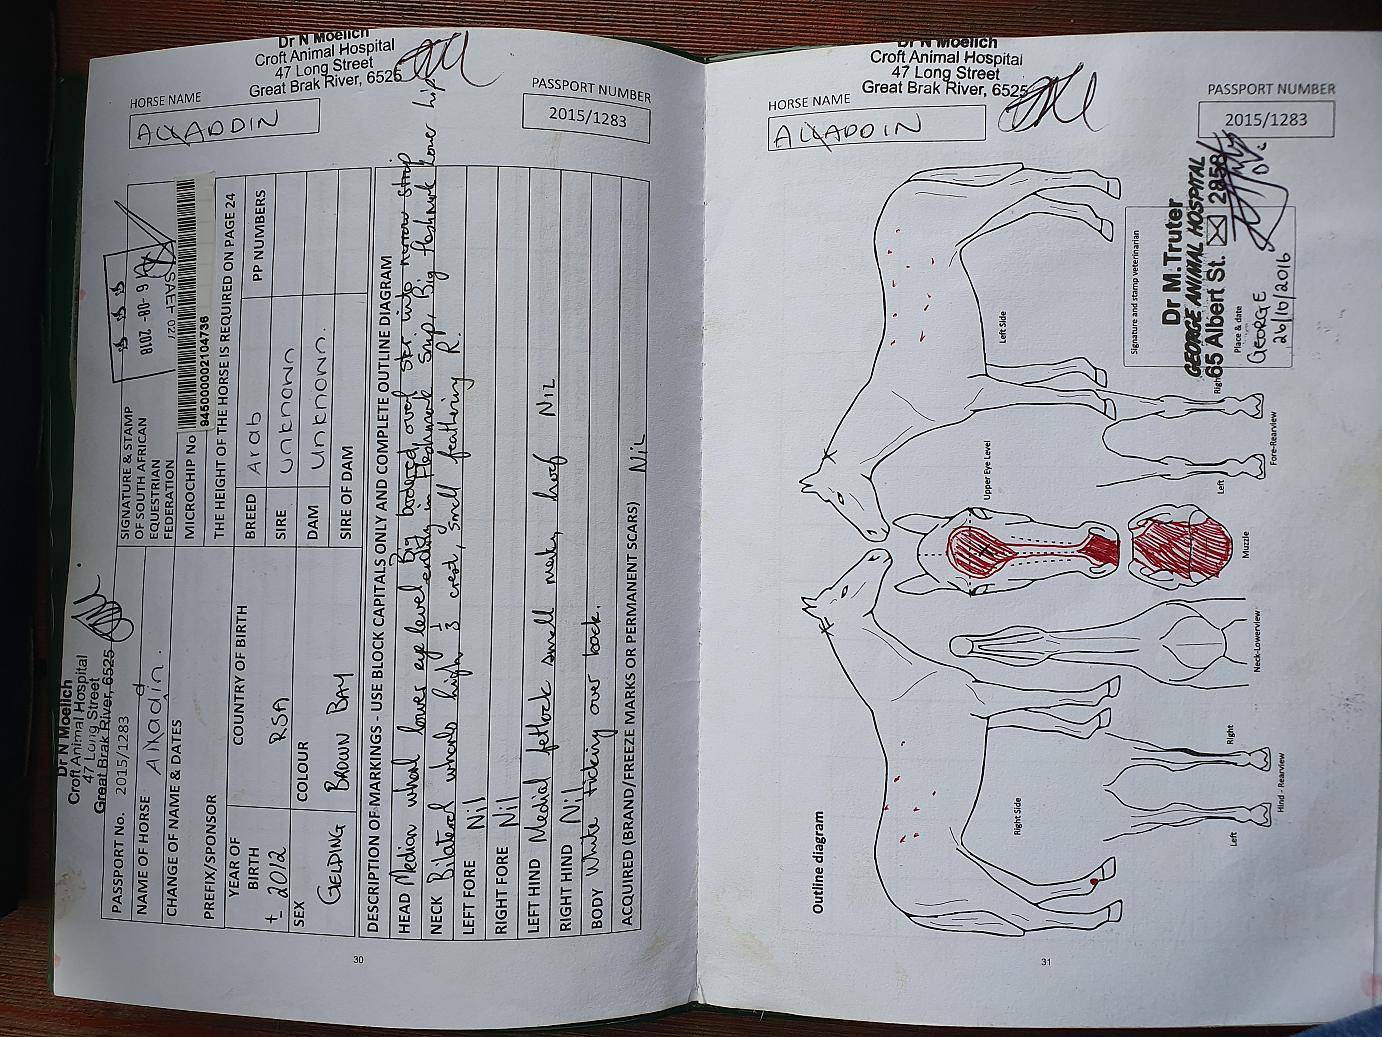 Dr N Moelich
Croft Animal Hospital
47 Long Street
Great Brak River, 6525
HORSE NAME
ALXADDIN
PASSPORT NUMBER
2015/1283
Dr N Moelich
Croft Animal Hospital
47 Long Street
Great Brak River, 6525
PASSPORT No. 2015/1283
NAME OF HORSE Alxaddin.
CHANGE OF NAME & DATES
PREFIX/SPONSOR
YEAR OF BIRTH
± 2012
COUNTRY OF BIRTH
RSA
SEX
GELDING
COLOUR
BROWN BAY
SIGNATURE & STAMP
OF SOUTH AFRICAN
EQUESTRIAN
FEDERATION
SAEF 02/
2018 -08- 6
MICROCHIP No
945000002104736
THE HEIGHT OF THE HORSE IS REQUIRED ON PAGE 24
BREED Arab
SIRE Unknown
DAM Unknown.
SIRE OF DAM
PP NUMBERS
DESCRIPTION OF MARKINGS - USE BLOCK CAPITALS ONLY AND COMPLETE OUTLINE DIAGRAM
HEAD Median whorl lower eye level, Big bordered oval star into narrow strip
ending in fleshmark snip, Big fleshmark lower lip
NECK Bilateral whorls high ⅓ crest, small feathering R.
LEFT FORE Nil
RIGHT FORE Nil
LEFT HIND Medial fetlock small mark, hoof NIL
RIGHT HIND Nil
BODY White ticking over back.
ACQUIRED (BRAND/FREEZE MARKS OR PERMANENT SCARS) Nil
30
Dr N Moelich
Croft Animal Hospital
47 Long Street
Great Brak River, 6525
HORSE NAME
ALXADDIN
PASSPORT NUMBER
2015/1283
Outline diagram
Right Side
Left Side
Upper Eye Level
Left
Right
Fore-Rearview
Muzzle
Neck-Lowerview
Left
Right
Hind - Rearview
Signature and stamp veterinarian
Dr M. Truter
GEORGE ANIMAL HOSPITAL
65 Albert St.
Place & date
GEORGE
26/10/2016
31